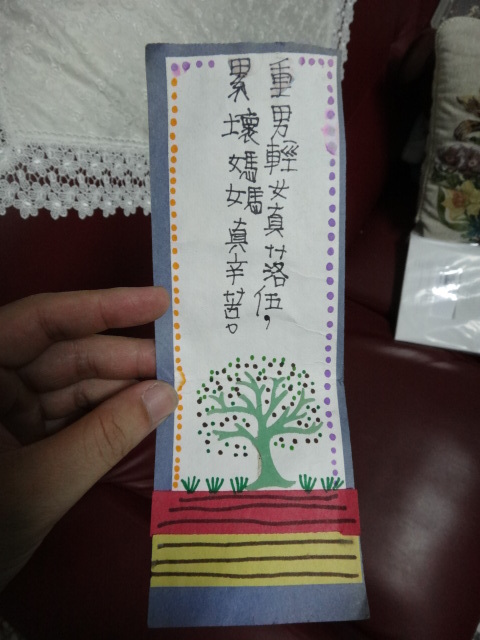 重男輕女真落伍，
累壞媽媽真辛苦。